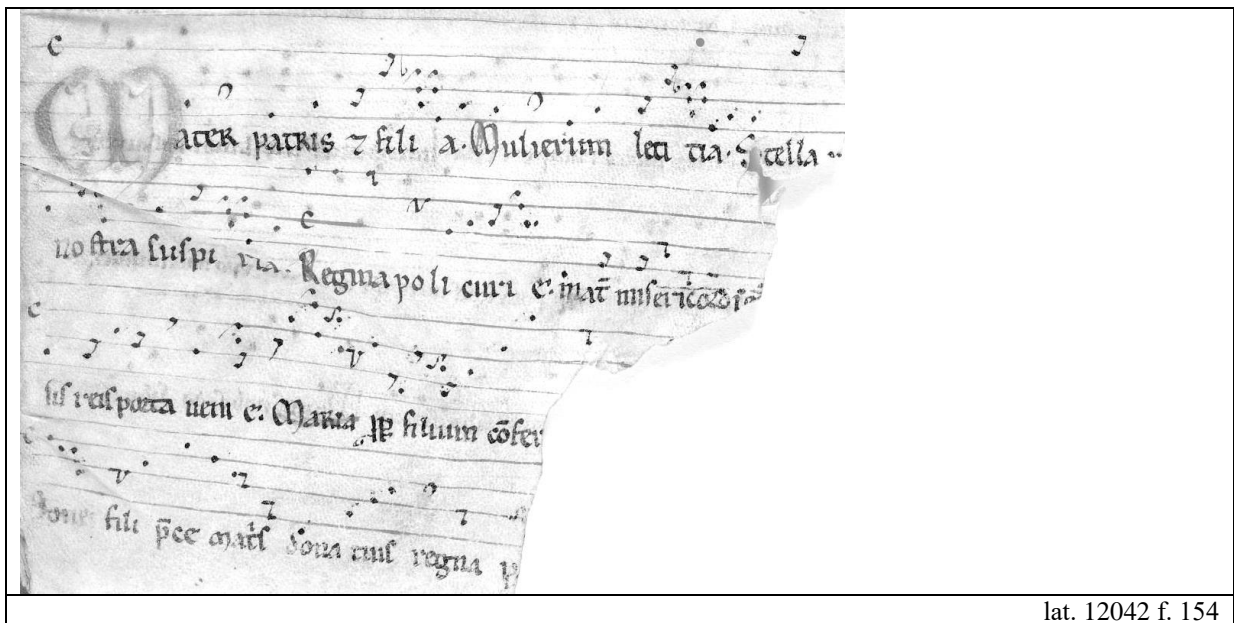 Mater patris ⁊ fili a. Mulierum leti cia. Stella
nostra suspi ria. Regina poli curi e. mat̄ misericordi
sis reis porta veni e. Maria ꝑ filium cōfer
bone fili p̄ce mat̄s dona tuis regna
lat. 12042 f. 154